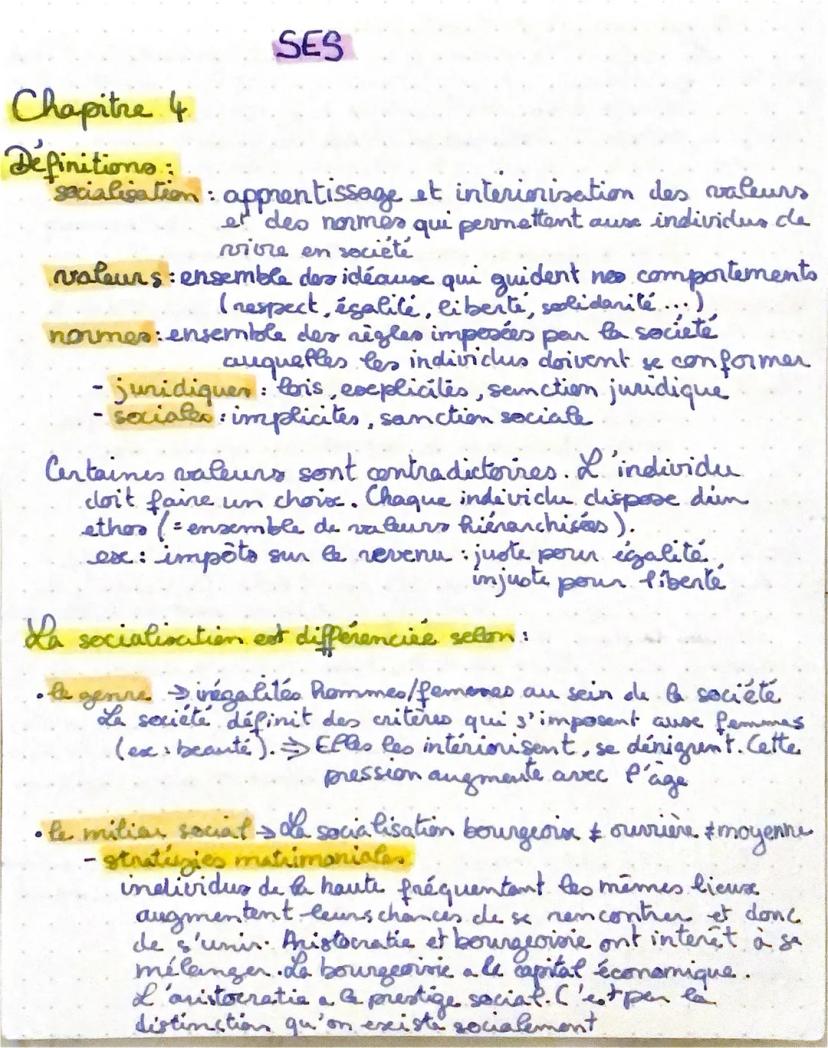 SES
Chapitre 4
Définitions :
socialisation : apprentissage et intériorisation des valeurs
et des normes qui permettent aux individus de
vivre en société
valeurs : ensemble des idéaux qui guident nos comportements
(respect, égalité, liberté, solidarité...)
normes : ensemble des règles imposées par la société
auxquelles les individus doivent se conformer
- juridiques : lois, explicites, sanction juridique
- sociales : implicites, sanction sociale
Certaines valeurs sont contradictoires. L'individu
doit faire un choix. Chaque individu dispose d'un
ethos (= ensemble de valeurs hiérarchisées).
ex : impôts sur le revenu : juste pour égalité
injuste pour liberté
La socialisation est différenciée selon :
• le genre → inégalités hommes/femmes au sein de la société
La société définit des critères qui s'imposent aux femmes
(ex : beauté). ⇒ Elles les intériorisent, se dénigrent. Cette
pression augmente avec l'âge
• le milieu social → La socialisation bourgeoise ≠ ouvrière ≠ moyenne
- stratégies matrimoniales
individus de la haute fréquentant les mêmes lieux
augmentent leurs chances de se rencontrer et donc
de s'unir. Aristocratie et bourgeoisie ont interêt à se
mélanger. La bourgeoisie a le capital économique.
L'aristocratie a le prestige social. C'est par la
distinction qu'on existe socialement